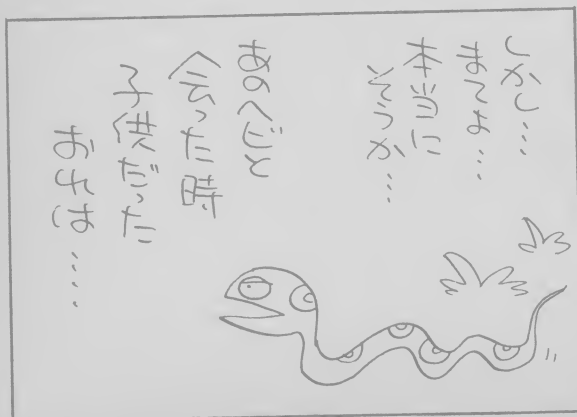 しかし…
まてよ…
本当に
そうか…
あのへびと
会った時
子供だった
おれは……